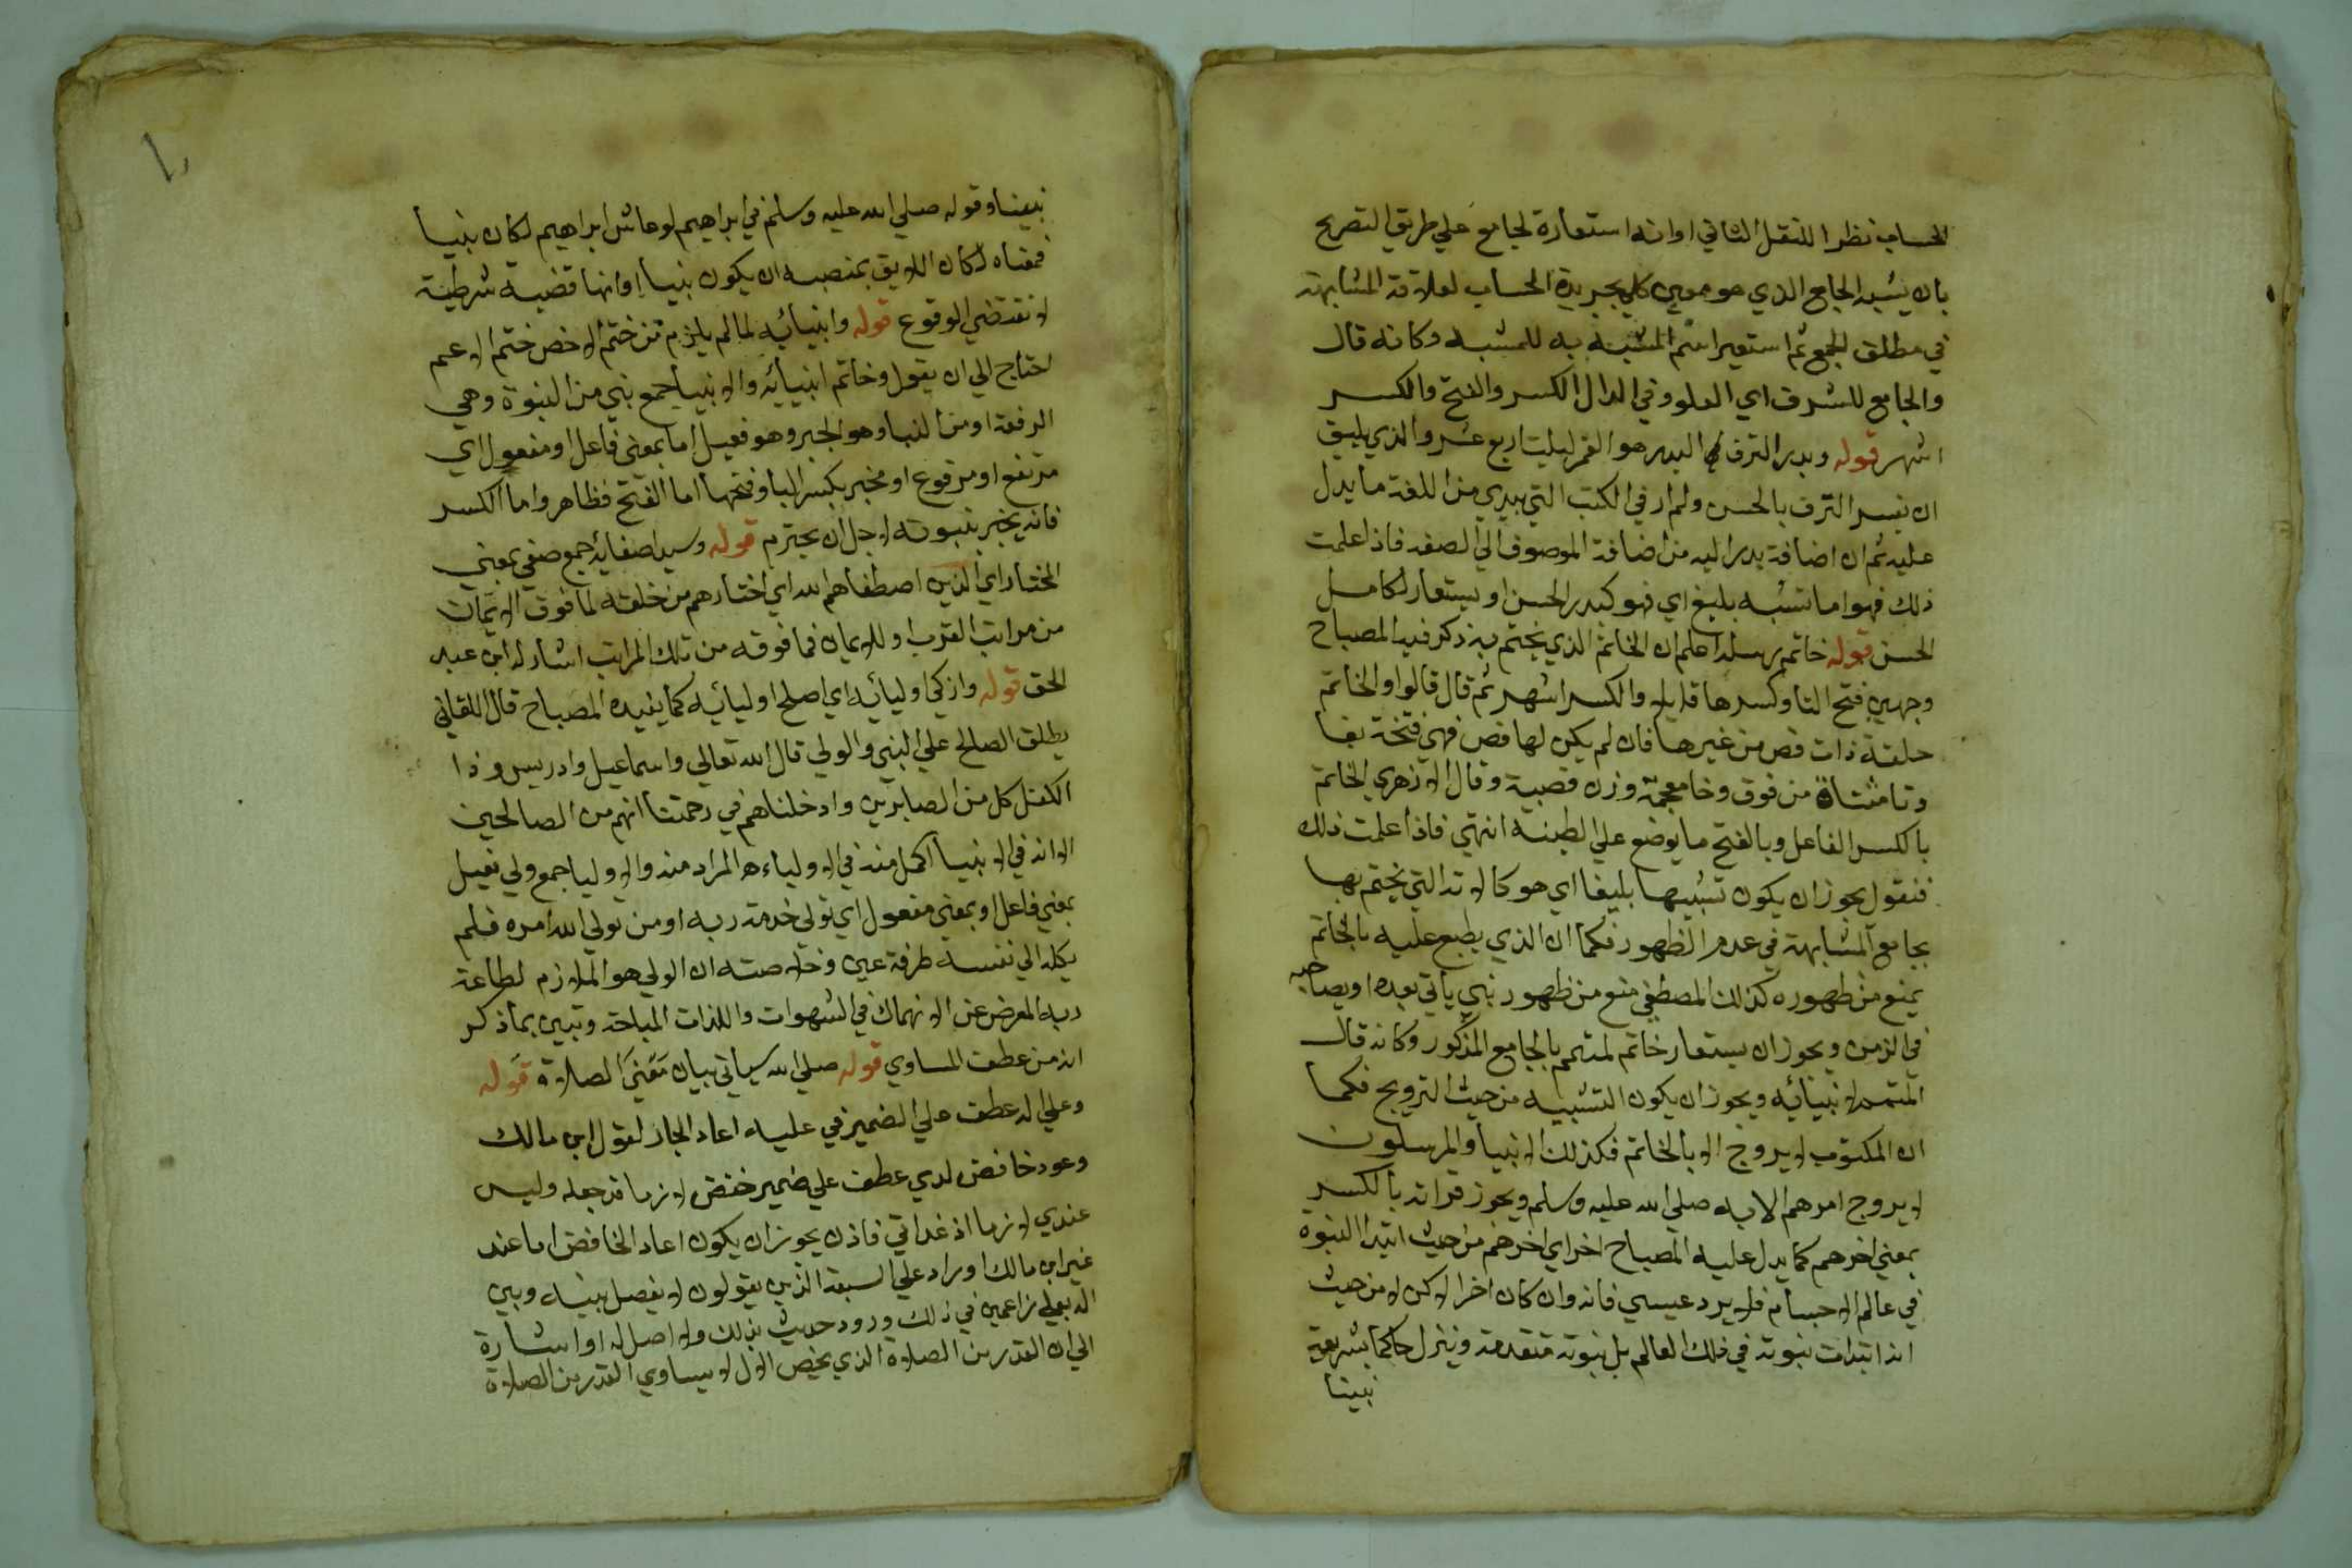 الحساب نظرا للنقل الثاني او انه استعارة لجامع علي طريق التصريح
بان يشبه الجامع الذي هو معين كل بجريدة الحساب لعلاقة المشابهة
في مطلق الجمع ثم استعير اسم المشبه به للمشبه وكانه قال
والجامع للشرف اي العلو وفي الدال الكسر والفتح والكسر
اشهر قوله وبدر الترف البدر هو القمر ليلت اربع عشر والذي يليق
ان يفسر الترف بالحسن ولم ار في الكتب التي بيدي من اللغة ما يدل
عليه ثم ان اضافة بدر اليه من اضافة الموصوف الي الصفه فاذا علمت
ذلك فهو اما تشبه بليغ اي فهو كبدر الحسن او يستعار لكامل
الحسن قوله خاتم رسله اعلم ان الخاتم الذي يختم به ذكر فيه المصباح
وجهين فتح التا وكسرها قايلا والكسر اشهر ثم قال قالوا والخاتم
حلقة ذات فص من غيرها فان لم يكن لها فص فهي فتخة بفا
وتا مثناة من فوق وخا معجمة وزن قصبة وقال الازهري الخاتم
بالكسر الفاعل وبالفتح ما يوضع علي الطينه انتهي فاذا علمت ذلك
فنقول يجوز ان يكون تشبيها بليغا اي هو كالاتد التي يختم بها
بجامع المشابهة في عدم الظهور فكما ان الذي يطبع عليه بالخاتم
يمنع من ظهوره كذلك المصطفي منع من ظهور نبي ياتي بعده او يصاحبه
في الزمن ويجوز ان يستعار خاتم لمتمم بالجامع المذكور وكانه قال
المتمم لانبيائه ويجوز ان يكون التشبيه من حيث الترويج فكما
ان المكتوب لا يروج الا بالخاتم فكذلك الانبيا والمرسلون
لا يروج امرهم الا به صلي الله عليه وسلم ويجوز قراته بالكسر
بمعني اخرهم كما يدل عليه المصباح اخر اي اخرهم من حيث ابتدا النبوه
في عالم الاجسام فلا يرد عيسي فانه وان كان اخرا لكن لا من حيث
انه ابتدات نبوته في ذلك العالم بل نبوته متقدمة وينزل حاكما بشريعة
نبينا
نبينا وقوله صلي الله عليه وسلم في ابراهيم لو عاش ابراهيم لكان نبيا
فمعناه لكان اللايق بمنصبه ان يكون نبيا او انها قضيه شرطية
لا تقتضي الوقوع قوله وانبيائه لما لم يلزم من ختم الاخص ختم الاعم
احتاج الي ان يقول وخاتم انبيائه والانبيا جمع نبي من النبوة وهي
الرفعة او من النبا وهو الخبر وهو فعيل اما بمعني فاعل او مفعول اي
مرتفع او مرفوع او مخبر بكسر البا وفتحها اما الفتح فظاهر واما الكسر
فانه يخبر بنبوته لاجل ان يحترم قوله وسيد اصفيائه جمع صفي بمعني
المختار اي الذين اصطفاهم الله اي اختارهم من خلقه لما فوق الايمان
من مراتب القرب او للايمان فما فوقه من تلك المراتب اشار له ابن عبد
الحق قوله وازكي اوليائه اي اصلح اوليائه كما يفيده المصباح قال اللقاني
يطلق الصالح علي النبي والولي قال الله تعالي واسماعيل وادريس وذا
الكفل كل من الصابرين وادخلناهم في رحمتنا انهم من الصالحين
الا انه في الانبيا اكمل منه في الاولياء ه المراد منه والاوليا جمع ولي فعيل
بمعني فاعل او بمعني مفعول اي تولي خدمة ربه او من تولي الله امره فلم
يكله الي نفسه طرفة عين وخلاصته ان الولي هو الملازم لطاعة
ربه المعرض عن الانهماك في الشهوات واللذات المباحة وتبين بما ذكر
انه من عطف المساوي قوله صلي الله سياتي بيان معني الصلاة قوله
وعلي اله عطف علي الضمير في عليه اعاد الجار لقول ابن مالك
وعود خافض لدي عطف علي ضمير خفض لازما قد جعله وليس
عندي لازما اذ قد اتي فاذن يجوز ان يكون اعاد الخافض اما عند
غير ابن مالك او راد علي الشيعة الذين يقولون لا يفصل بينه وبين
اله بعلي زاعمين في ذلك ورود حديث بذلك ولا اصل له او اشارة
الي ان القدر من الصلاة الذي يخص الال لا يساوي القدر من الصلاة